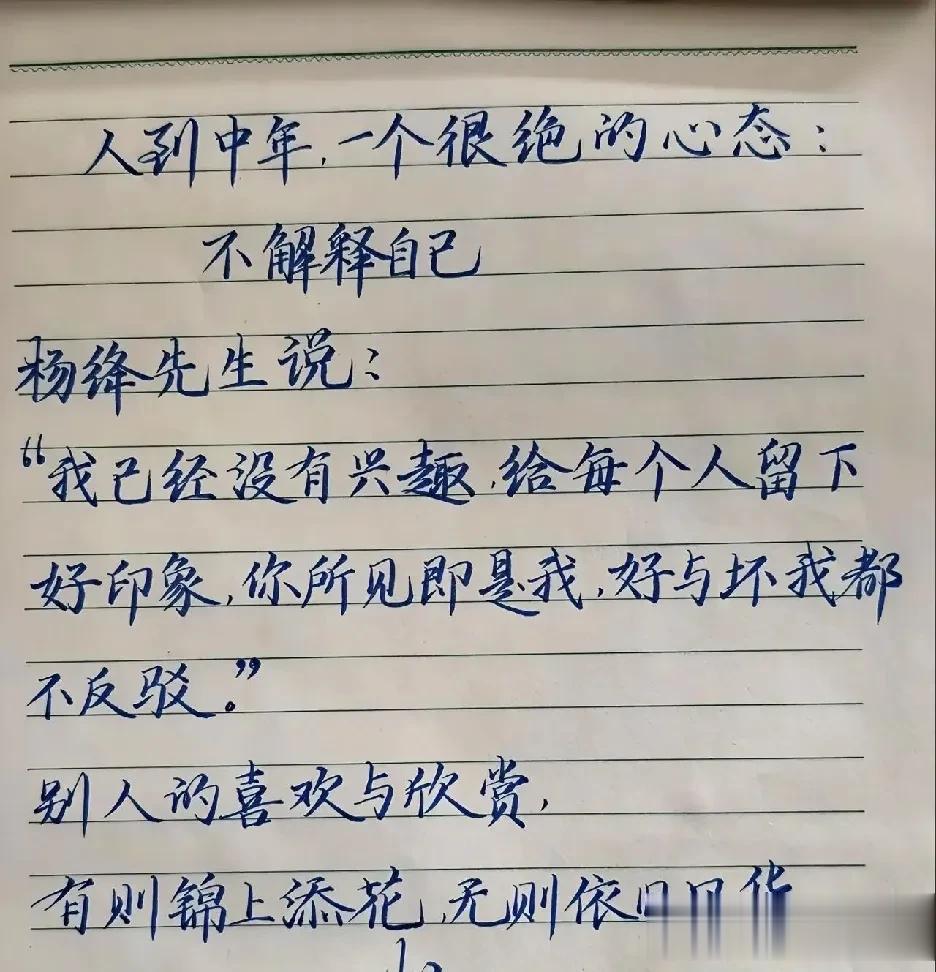 人到中年,一个很绝的心态:
不解释自己
杨绛先生说:
“我已经没有兴趣,给每个人留下
好印象,你所见即是我,好与坏我都
不反驳。”
别人的喜欢与欣赏,
有则锦上添花,无则依